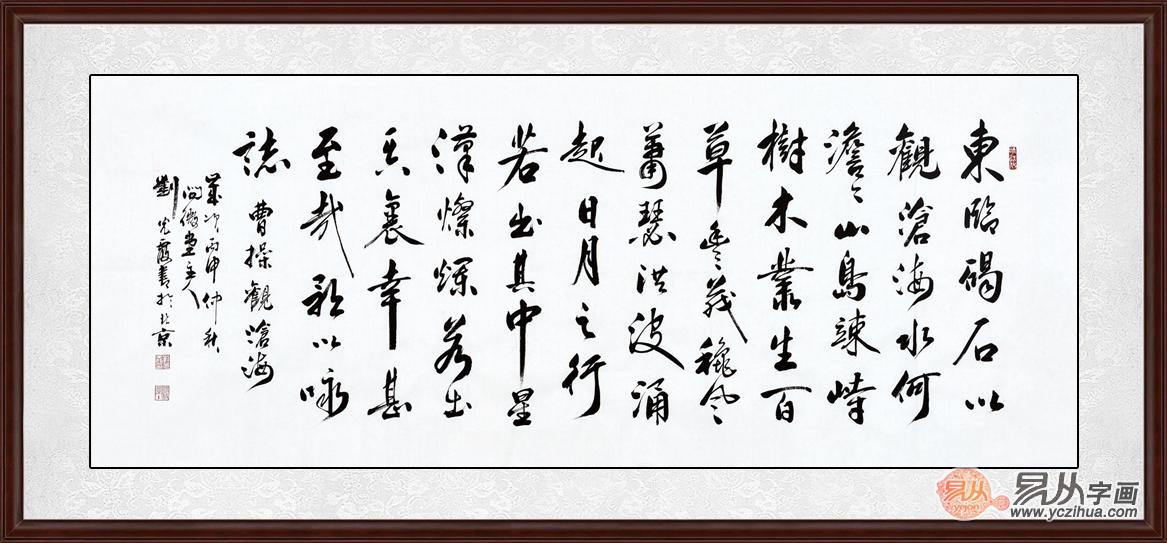 東臨碣石以
觀滄海水何
澹〻山島竦峙
樹木叢生百
草豐茂穐風
蕭瑟洪波涌
起日月之行
若出其中星
漢燦爛若出
其裏幸甚
至哉歌以咏
誌 曹操觀滄海
歲次丙申仲秋
堂主人
劉光霞書於北京
易从
易从字画
www.yczihua.com